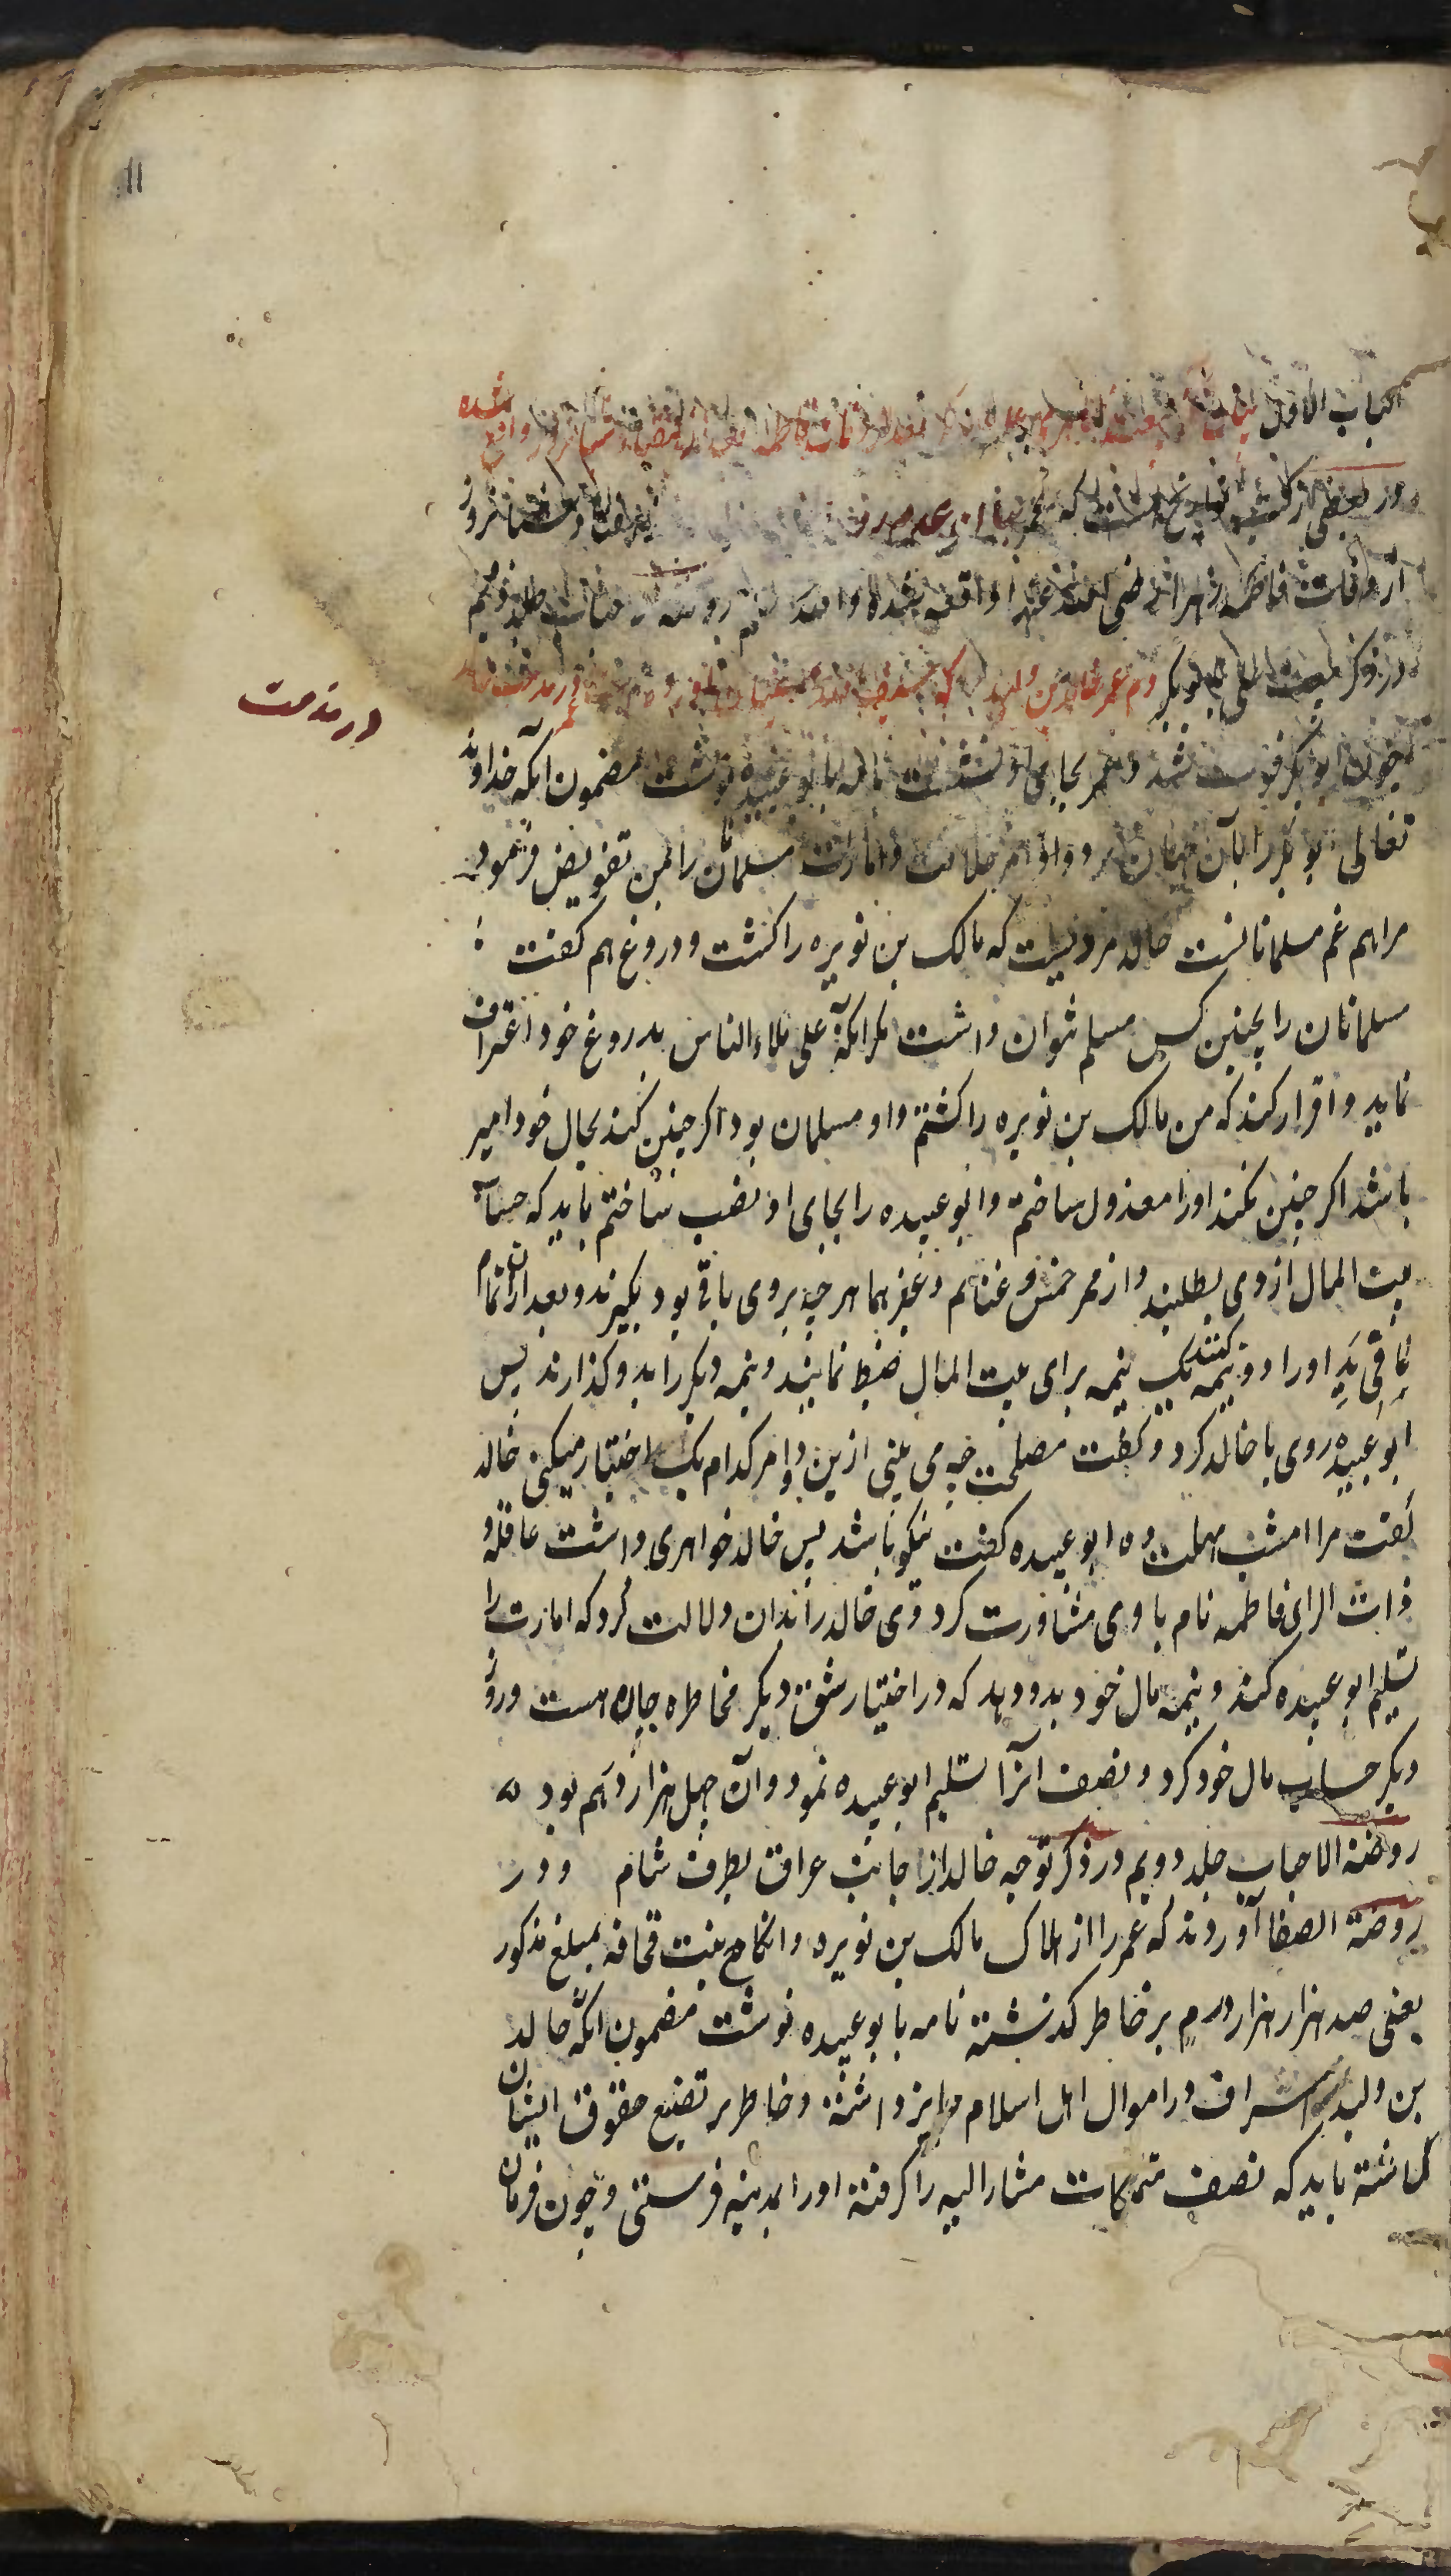 ۱۱
الباب الاول
ور بعضی از کتب تواریخ است که
از وفات فاطمه زهرا رضی الله عنها واقعه شده
در ذکر بیعت علی با ابوبکر
در مذمت
چون ابوبکر فوت شد و عمر بجای او نشست نامه بابو عبیده نوشت مضمون آنکه خداوند
تعالی ابوبکر را بآن جهان برد و امر خلافت و امارت مسلمانان را بمن تفویض فرمود
مرا هم غم مسلمانانست خالد مردیست که مالک بن نویره را کشت و دروغ هم کفت
مسلمانان را بچنین کس مسلم نتوان داشت مکر آنکه علی ملاء الناس بدروغ خود اعتراف
نماید و اقرار کند که من مالک بن نویره را کشتم و او مسلمان بود اکر چنین کند بحال خود امیر
باشد اکر چنین نکند او را معذول ساختم و ابو عبیده را بجای او نصب ساختم باید که حساب
بیت المال از وی بطلبند و از ممر خمس و غنایم و غیرهما هر چه بروی باقی بود بکیرند و بعد از آن تمام
ما فی ید او را دو نیمه کنند یک نیمه برای بیت المال ضبط نمایند و نیمه دیکر را بدو کذارند پس
ابو عبیده روی با خالد کرد و کفت مصلحت چه می بینی ازین دو امر کدام یک اختیار میکنی خالد
کفت مرا امشب مهلت ده ابو عبیده کفت نیکو باشد پس خالد خواهری داشت عاقله و
ذات الرای فاطمه نام با وی مشاورت کرد وی خالد را بدان دلالت کرد که امارت را
تسلیم ابو عبیده کند و نیمه مال خود بدو دهد که در اختیار شق دیکر مخاطره جان هست و روز
دیکر حساب مال خود کرد و نصف آنرا تسلیم ابو عبیده نمود و آن چهل هزار درهم بود ه
روضة الاحباب جلد دویم در ذکر توجه خالد از جانب عراق بطرف شام و در
روضة الصفا آوردند که عمر را از هلاک مالک بن نویره و انکاح بنت قحافه بمبلغ مذکور
یعنی صد هزار هزار درم بر خاطر کذشته نامه بابو عبیده نوشت مضمون آنکه خالد
بن ولید اسراف در اموال اهل اسلام جایز داشته و خاطر بر تضیع حقوق ایشان
کماشته باید که نصف متملکات مشارالیه را کرفته او را بمدینه فرستی و چون فرمان